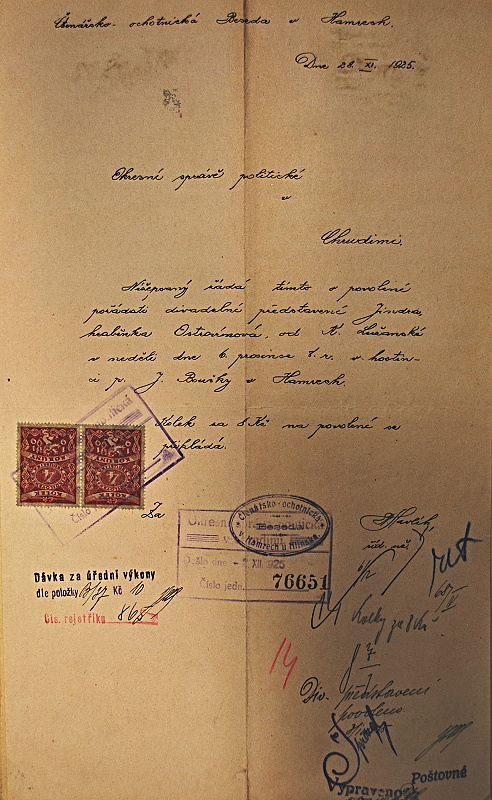 Čtenářsko-ochotnická Beseda v Hamrech.
Dne 28. XI. 1925.
Okresní správě politické
v
Chrudimi.
Nížepsaný žádá tímto o povolení
pořádati divadelné představení Jindra,
hraběnka Ostrovínová, od K. Lužanské
v neděli dne 6. prosince t. r. v hostin-
ci p. J. Boušky v Hamrech.
Kolek za 8 Kč na povolení se
přikládá.
Za
Čtenářsko-ochotnická
Beseda
v Hamrech u Hlinska
Došlo dne - 1. XII. 1925
Číslo jedn. 76651
KOLEK
KOLEK
Dávka za úřední výkony
dle položky Kč 10
Čís. rejstříku
14
Div. představení
povoleno
Vypraveno
Poštovné